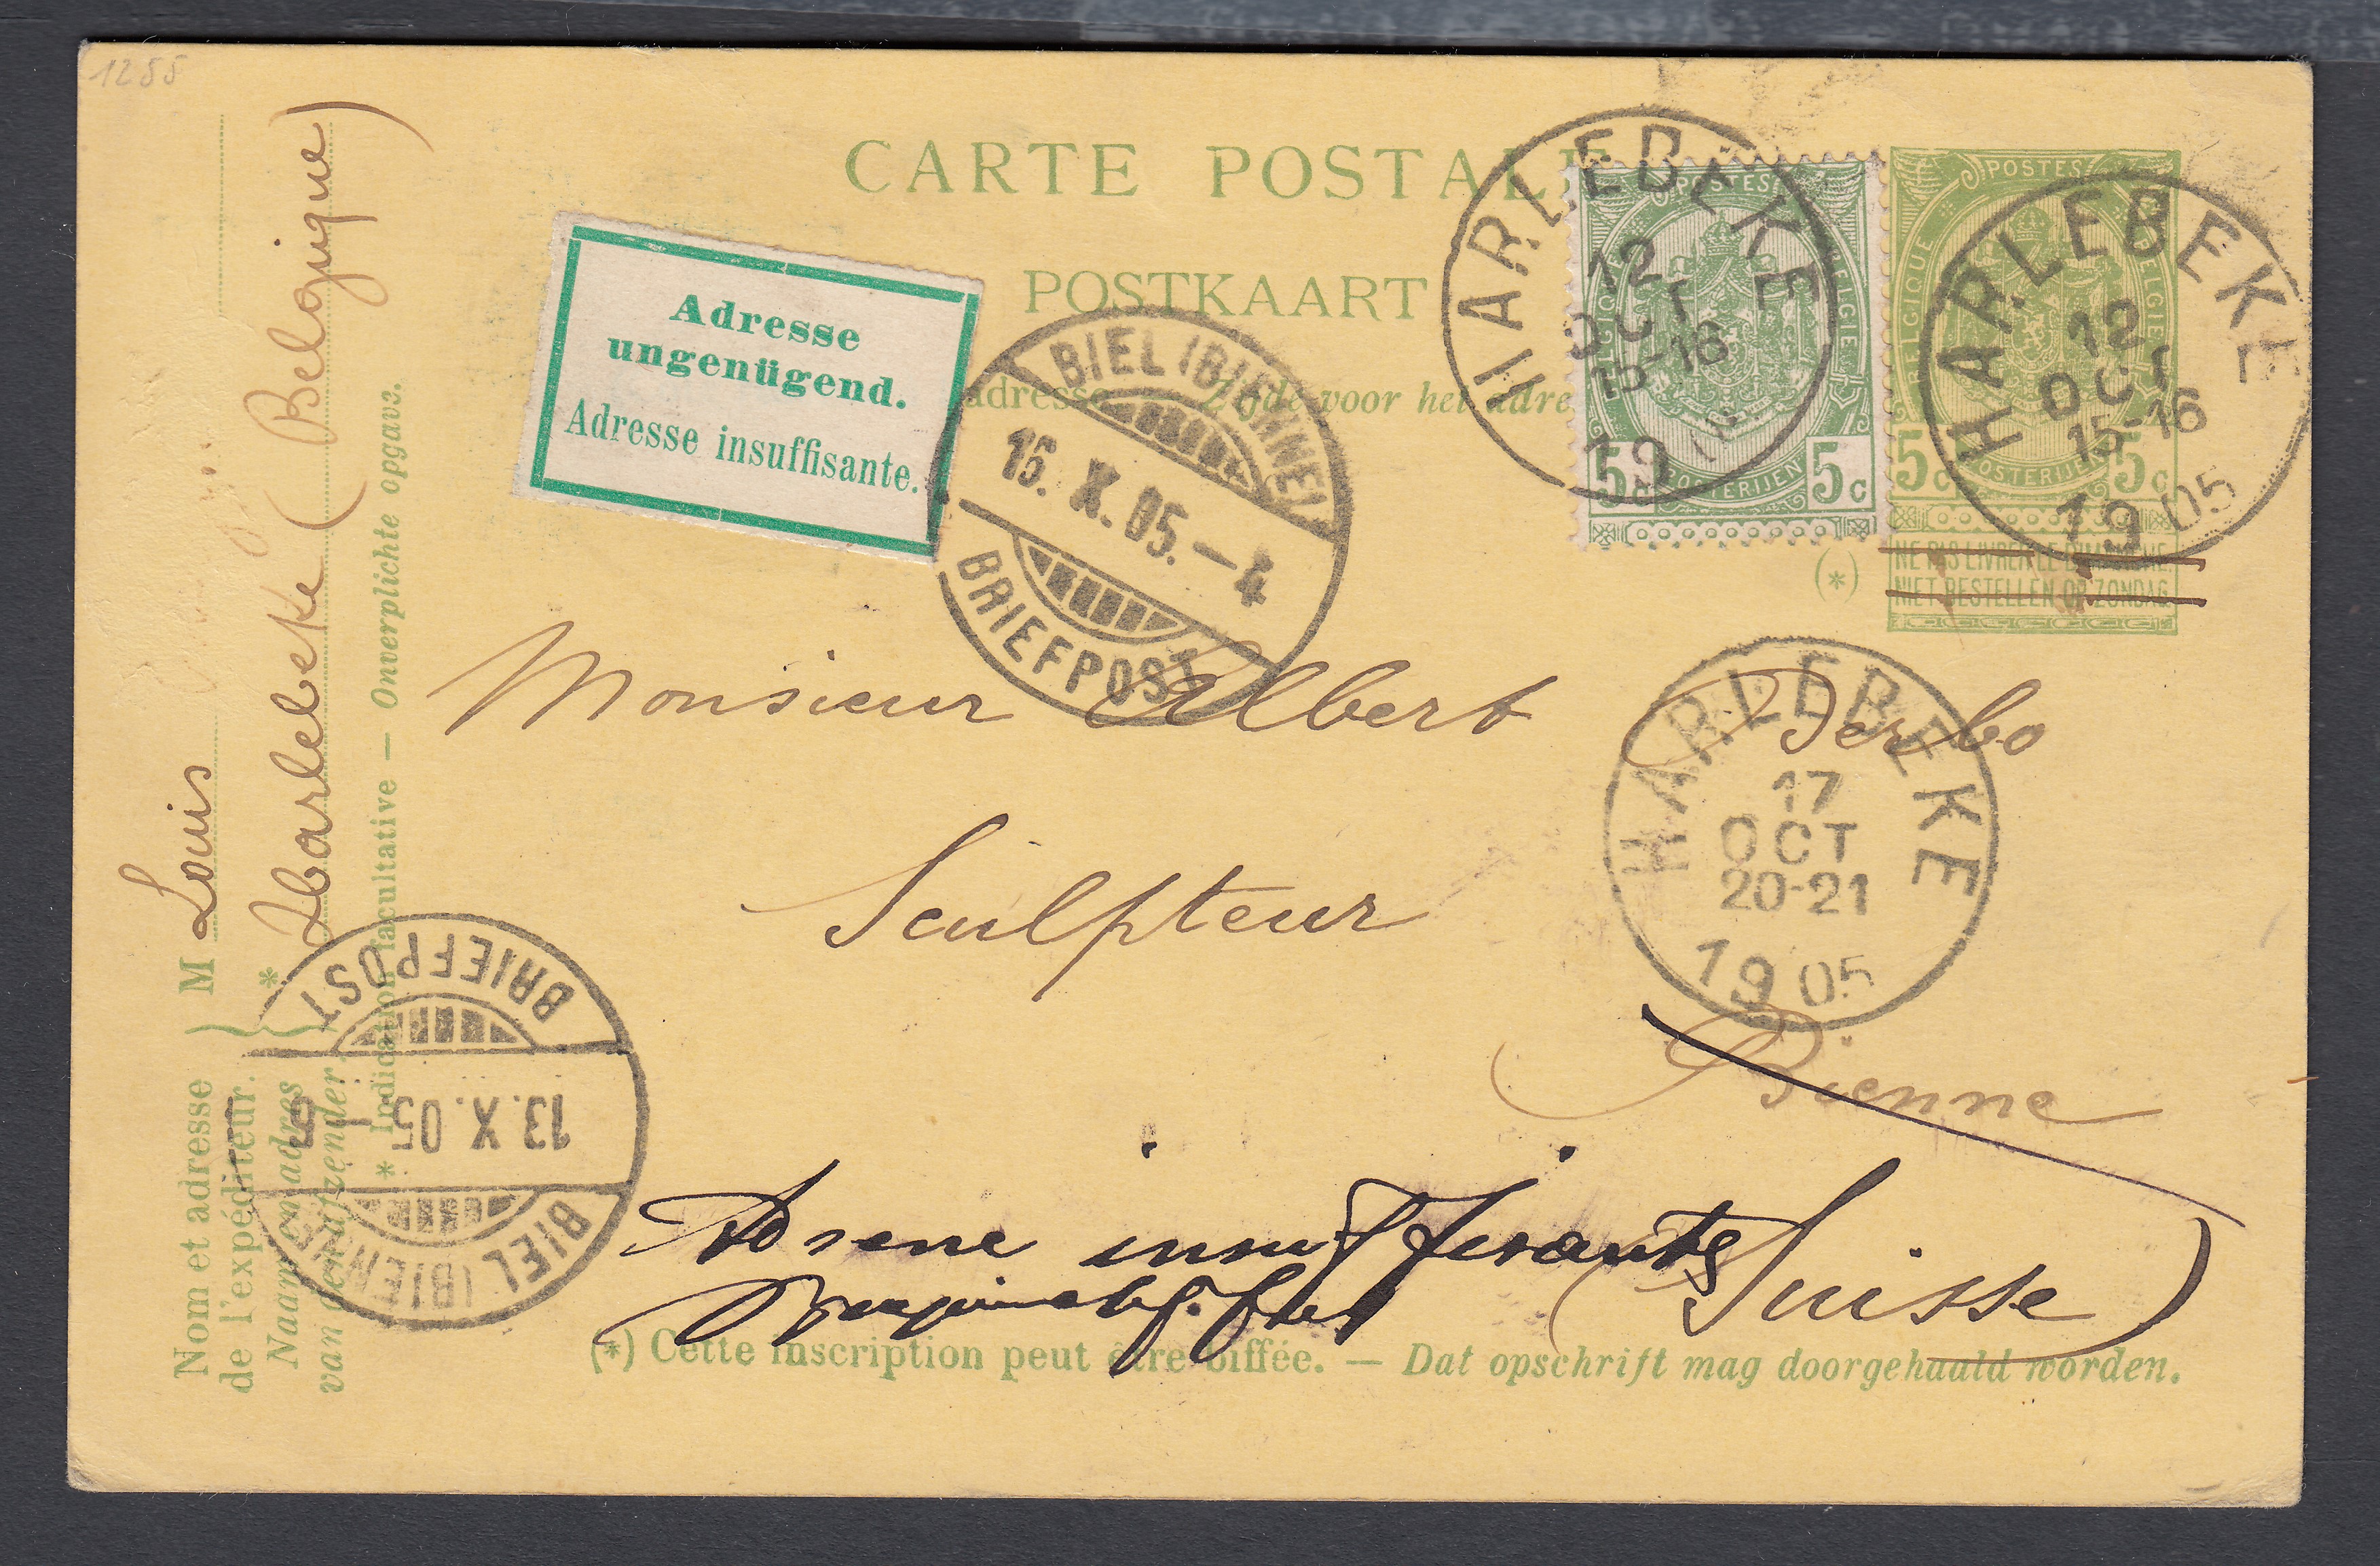 1255
CARTE POSTALE
POSTKAART
adresse Zijde voor het adre
Adresse
ungenügend.
Adresse insuffisante.
BIEL (BIENNE)
15. X. 05. – 4
BRIEFPOST
HARLEBEKE
12
OCT
15-16
19
POSTES
BELGIQUE
BELGIE
5c 5c
POSTERIJEN
POSTES
BELGIQUE
BELGIE
5c 5c
POSTERIJEN
HARLEBEKE
12
OCT
15-16
1905
(*)
NE PAS LIVRER LE DIMANCHE.
NIET BESTELLEN OP ZONDAG.
Monsieur Albert
Sculpteur
HARLEBEKE
17
OCT
20-21
1905
Bienne
(Suisse)
insuffisante
(*) Cette inscription peut être biffée. — Dat opschrift mag doorgehaald worden.
Nom et adresse
de l'expéditeur.
Naam en adres
van den afzender.
M Louis
* Harlebeke (Belgique)
* Indication facultative — Onverplichte opgave.
BRIEFPOST
13. X. 05
BIEL (BIENNE)